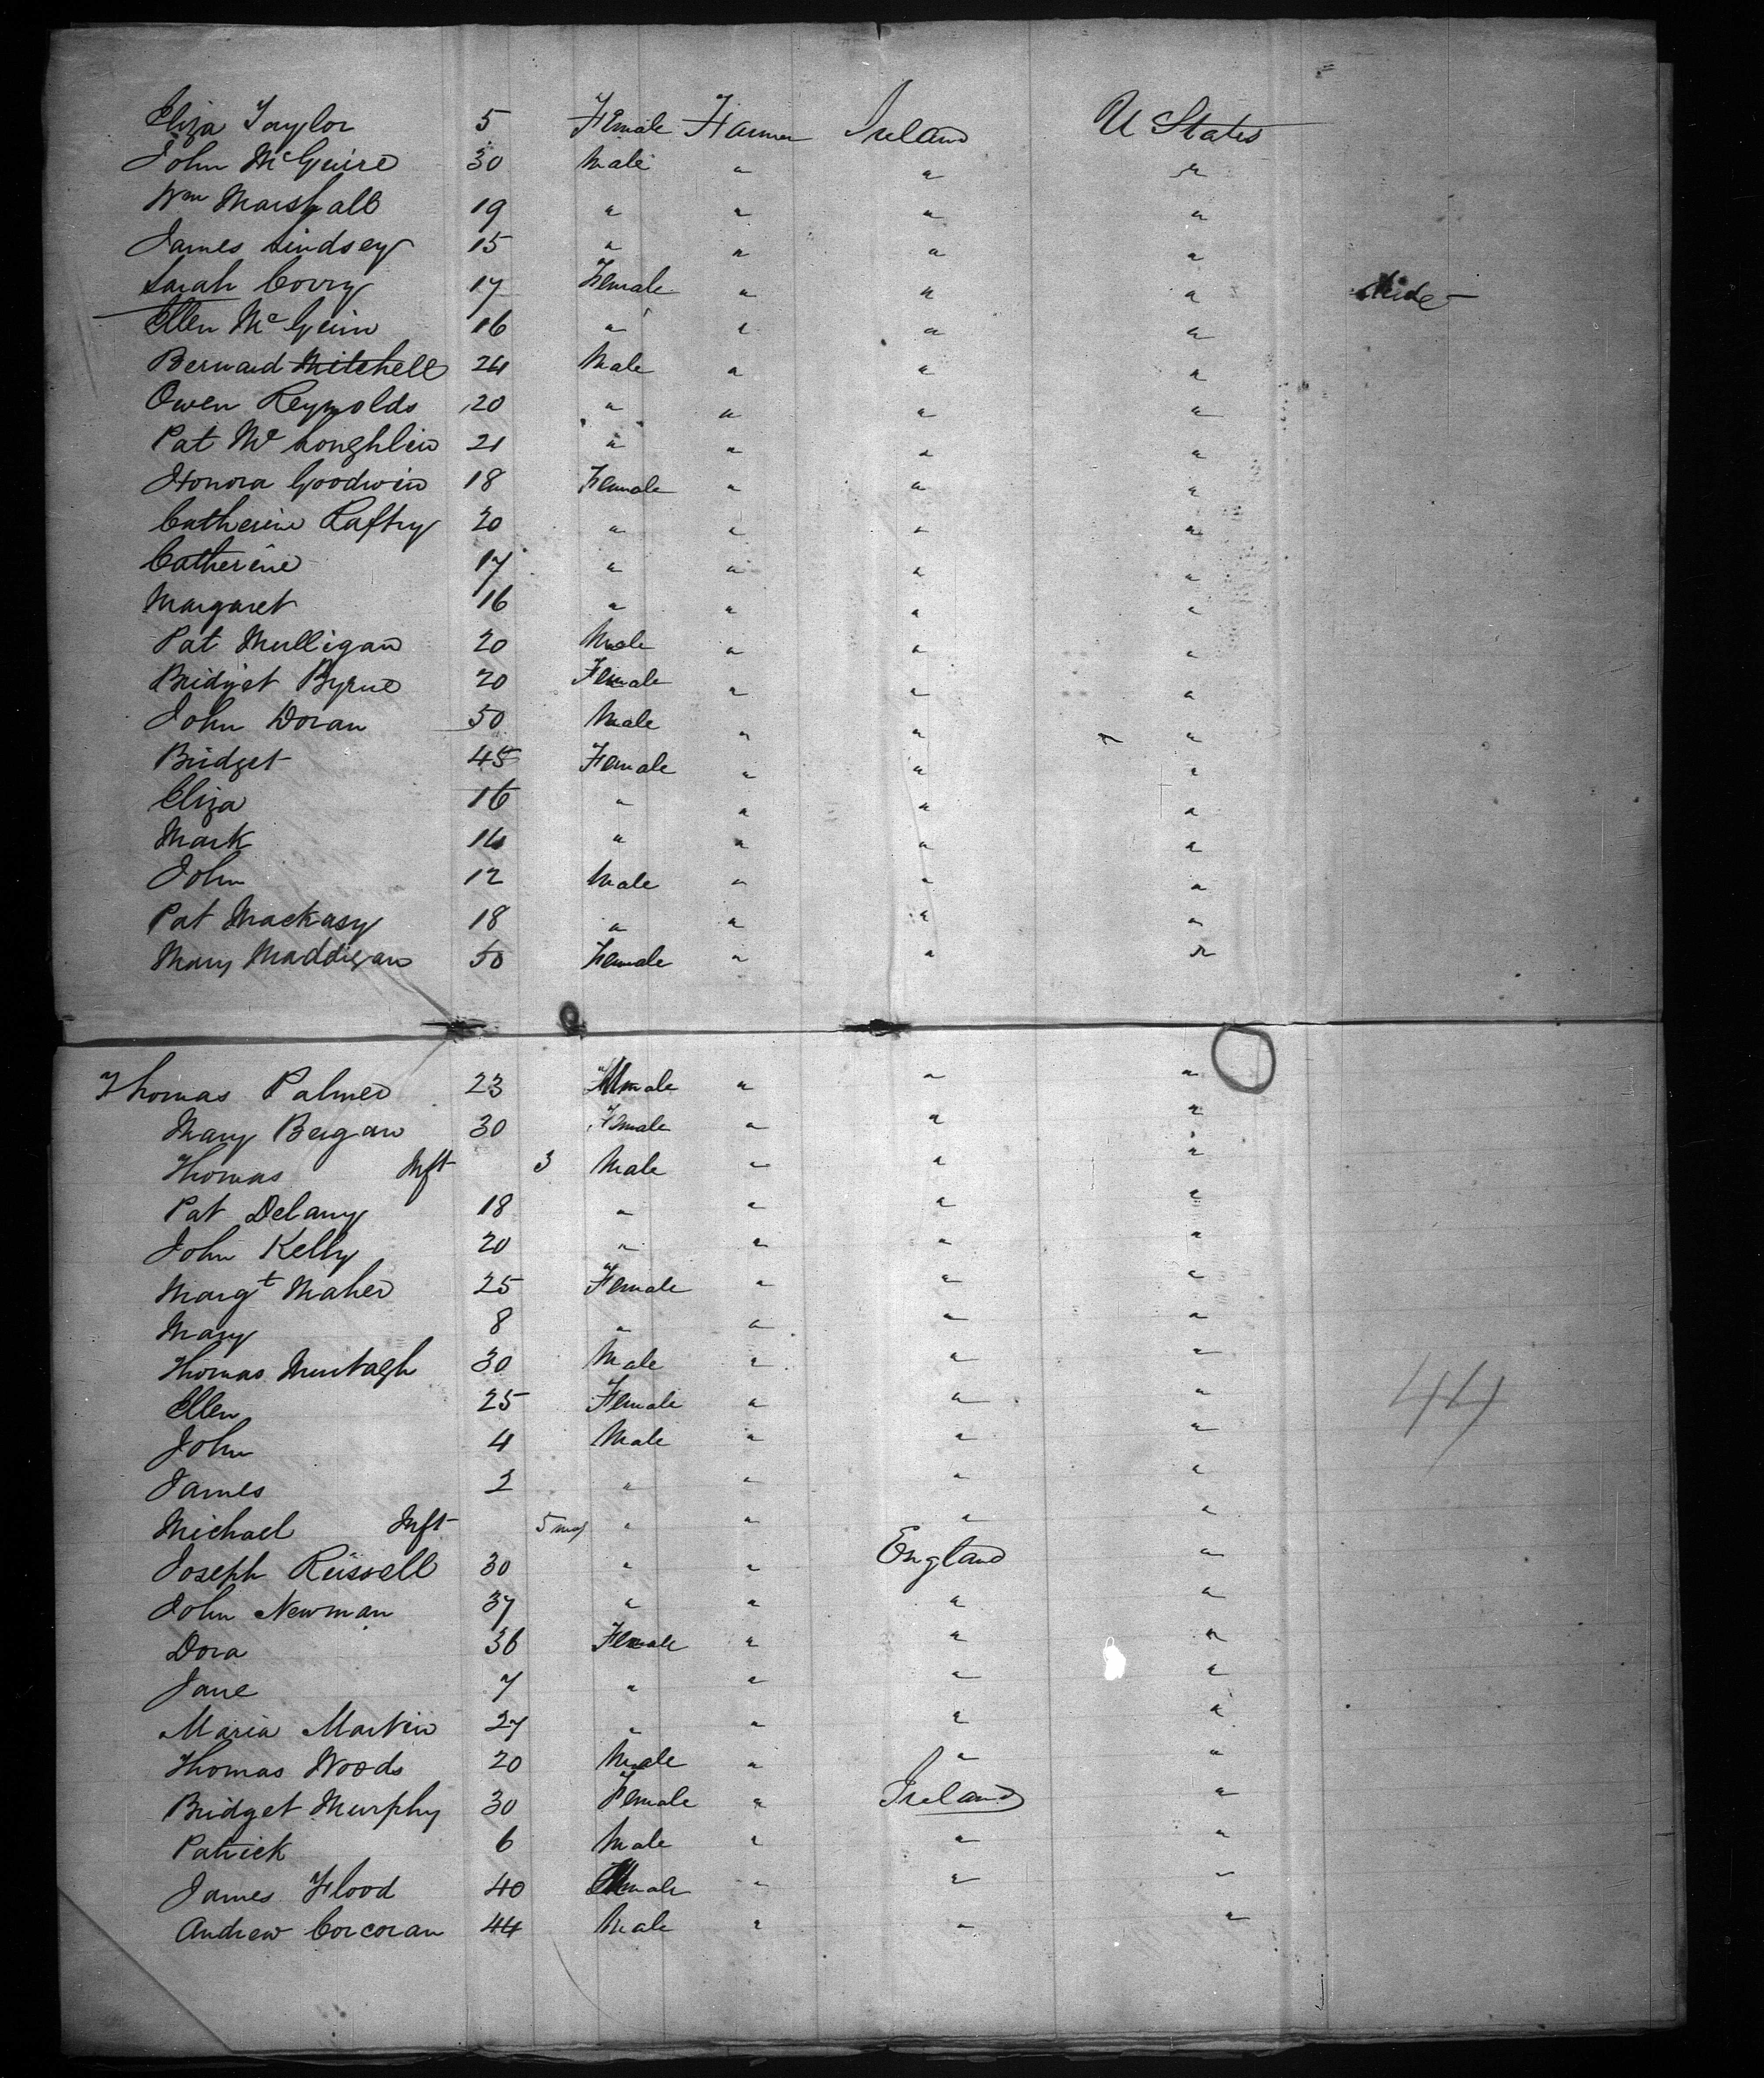 Eliza Taylor 5 Female Farmer Ireland U States
John McGuire 30 Male " " "
Wm Marshall 19 " " " "
James Lindsey 15 " " " "
Sarah Corry 17 Female " " "
Ellen McGuire 16 " " " "
Bernard Mitchell 24 Male " " "
Owen Reynolds 20 " " " "
Pat McLoughlin 21 " " " "
Honora Goodwin 18 Female " " "
Catherine Raftry 20 " " " "
Catherine 17 " " " "
Margaret 16 " " " "
Pat Mulligan 20 Male " " "
Bridget Byrne 20 Female " " "
John Doran 50 Male " " "
Bridget 45 Female " " "
Eliza 16 " " " "
Mark 14 " " " "
John 12 Male " " "
Pat Mackasy 18 " " " "
Mary Maddigan 50 Female " " "
Thomas Palmer 23 Male " " "
Mary Bergan 30 Female " " "
Thomas Inft 3 Male " " "
Pat Delany 18 " " " "
John Kelly 20 " " " "
Margt Maher 25 Female " " "
Mary 8 " " " "
Thomas Murtagh 30 Male " " "
Ellen 25 Female " " " 44
John 4 Male " " "
James 2 " " " "
Michael Inft 5 mos " " " "
Joseph Russell 30 " " England "
John Newman 37 " " " "
Dora 36 Female " " "
Jane 7 " " " "
Maria Martin 27 " " " "
Thomas Woods 20 Male " " "
Bridget Murphy 30 Female " Ireland "
Patrick 6 Male " " "
James Flood 40 Male " " "
Andrew Corcoran 44 Male " " "